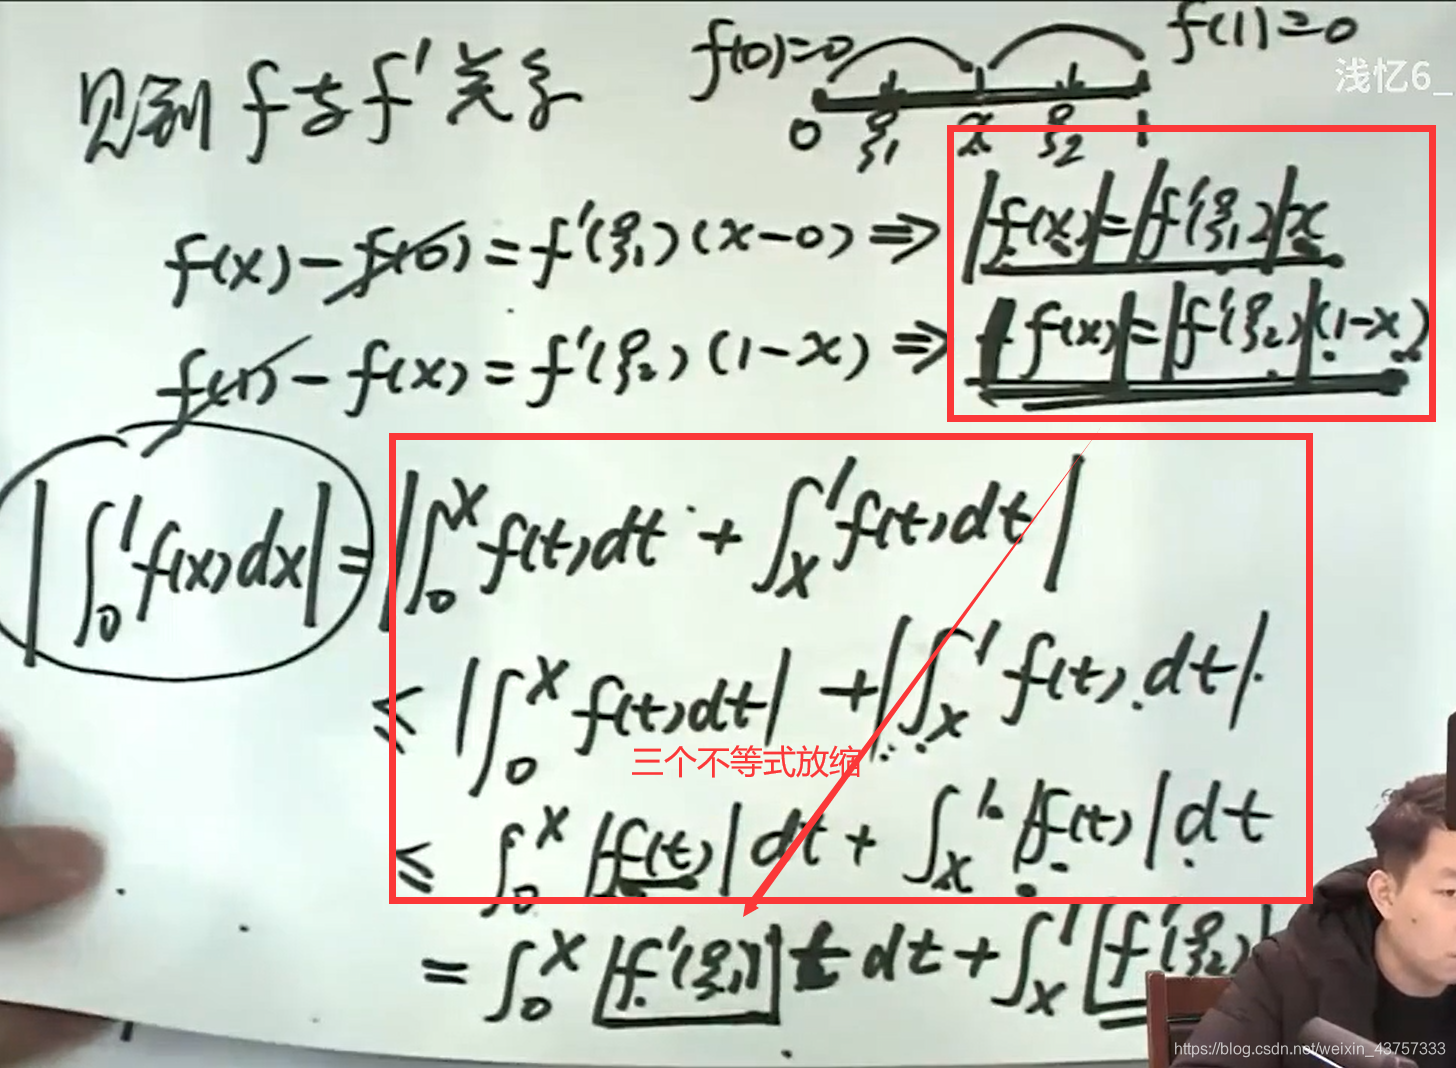 f(0)=0 f(1)=0
浅忆6_
见到 f与f'关系
0 ξ₁ x ξ₂ 1
f(x)-f(0)=f'(ξ₁)(x-0)⇒|f(x)|=|f'(ξ₁)|x
f(1)-f(x)=f'(ξ₂)(1-x)⇒|f(x)|=|f'(ξ₂)|(1-x)
|∫₀¹f(x)dx|=|∫₀ˣf(t)dt+∫ₓ¹f(t)dt|
≤|∫₀ˣf(t)dt|+|∫ₓ¹f(t)dt|
三个不等式放缩
≤∫₀ˣ|f(t)|dt+∫ₓ¹|f(t)|dt
=∫₀ˣ|f'(ξ₁)|t dt+∫ₓ¹|f'(ξ₂)|
https://blog.csdn.net/weixin_43757333